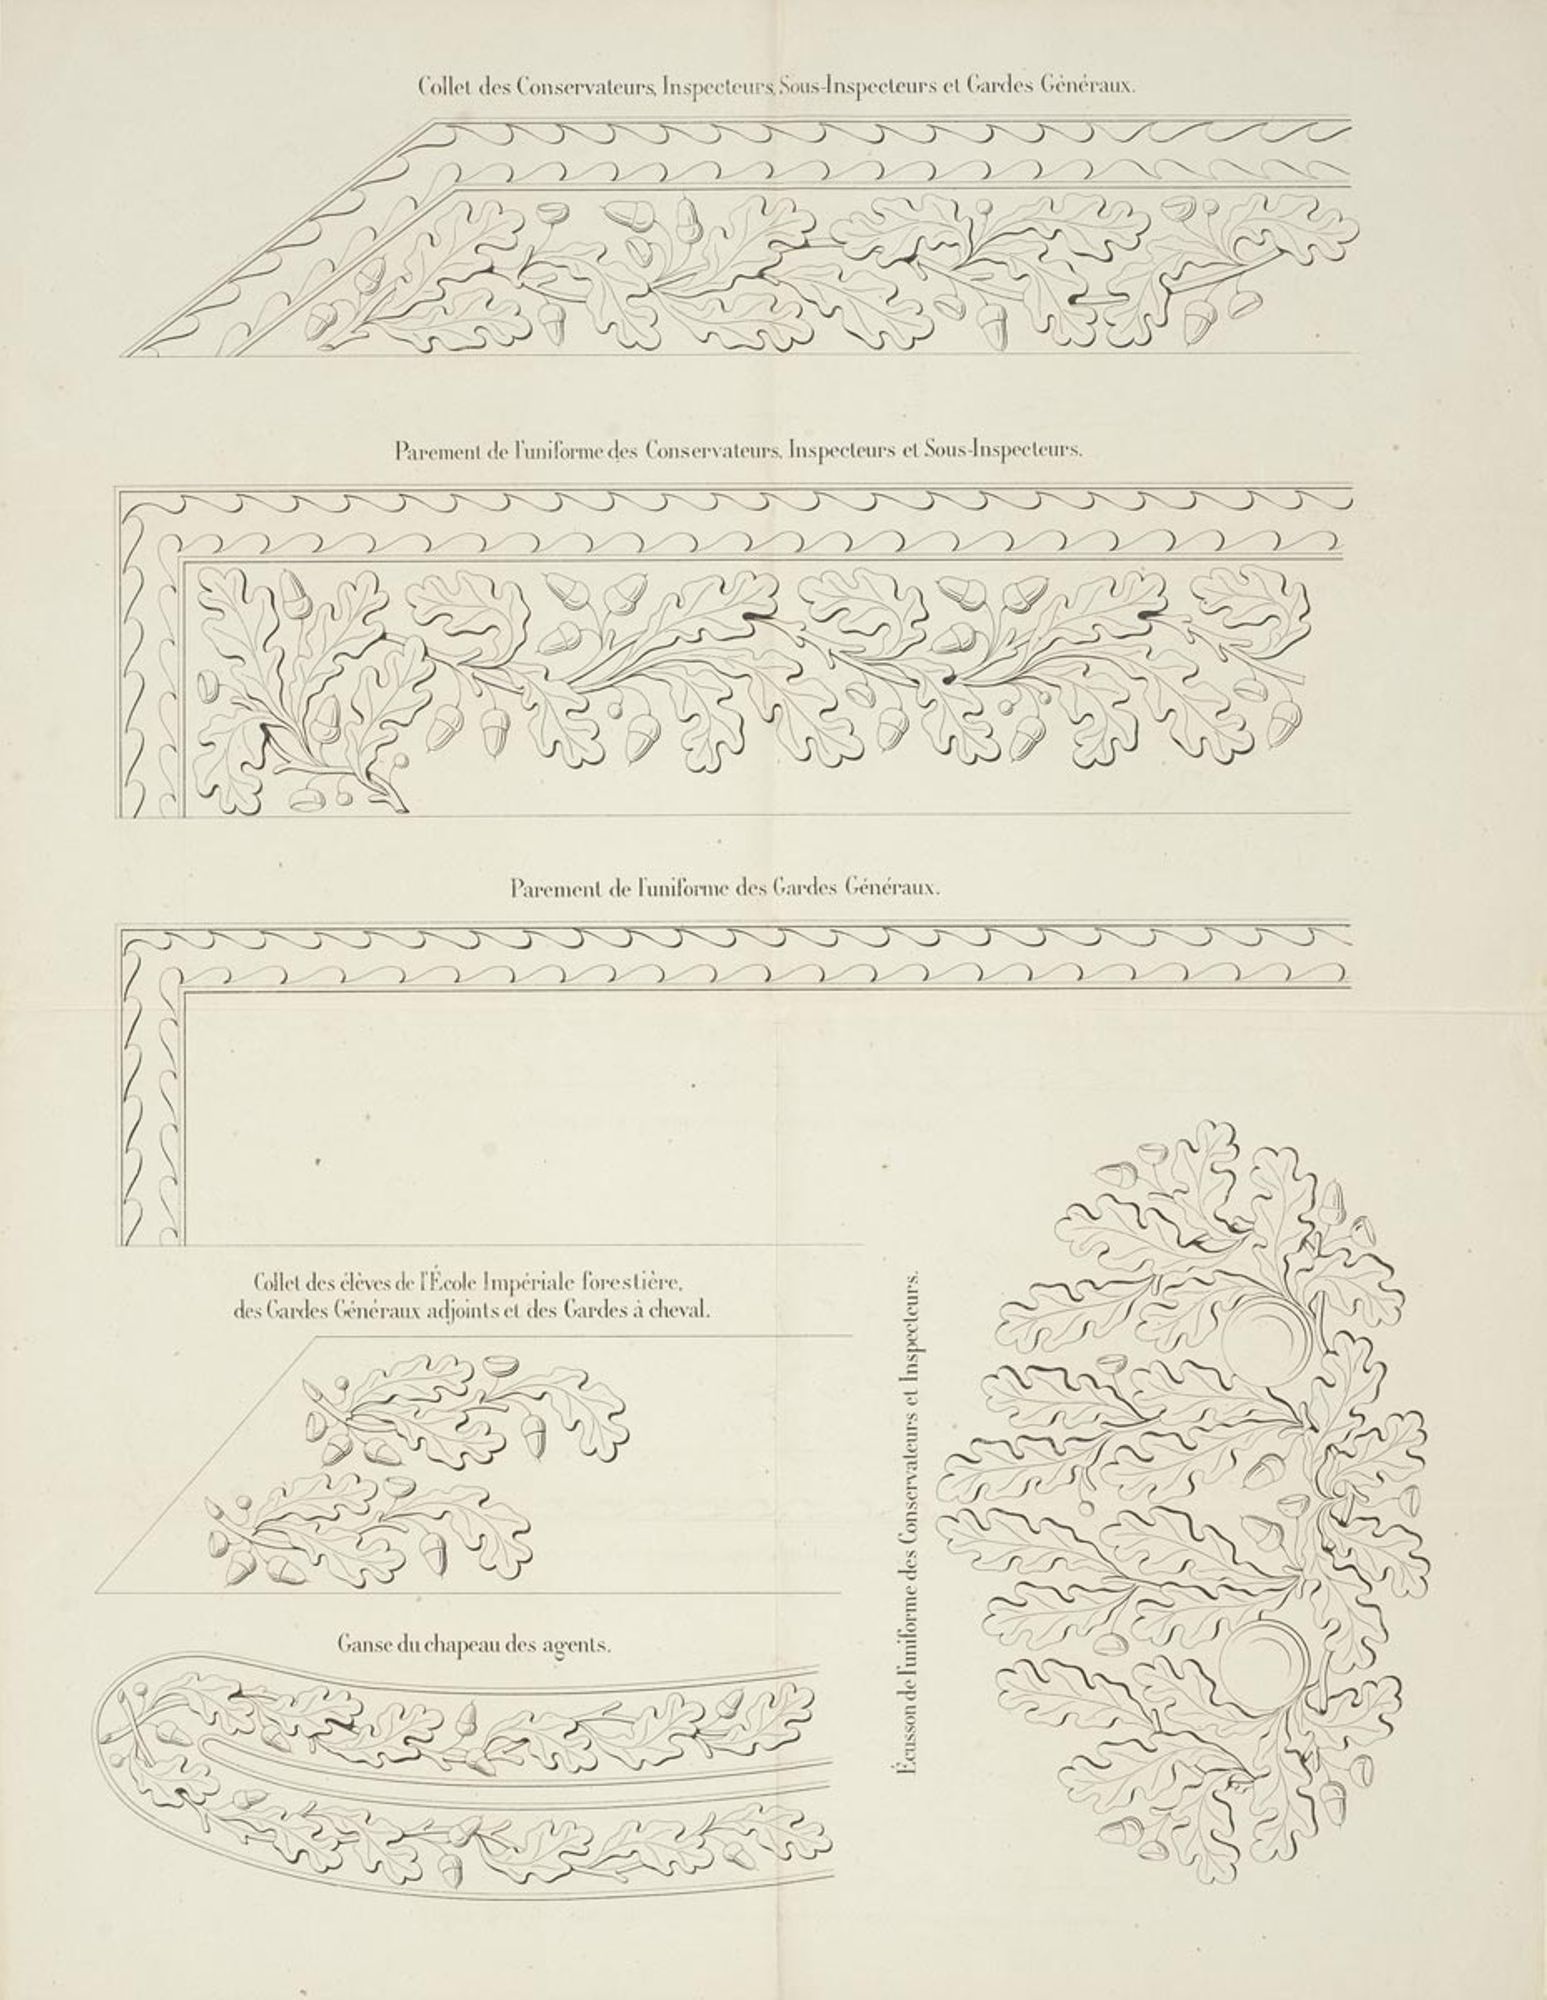 Collet des Conservateurs, Inspecteurs, Sous-Inspecteurs et Gardes Généraux.
Parement de l'uniforme des Conservateurs, Inspecteurs et Sous-Inspecteurs.
Parement de l'uniforme des Gardes Généraux.
Collet des élèves de l'École Impériale forestière,
des Gardes Généraux adjoints et des Gardes à cheval.
Écusson de l'uniforme des Conservateurs et Inspecteurs.
Ganse du chapeau des agents.